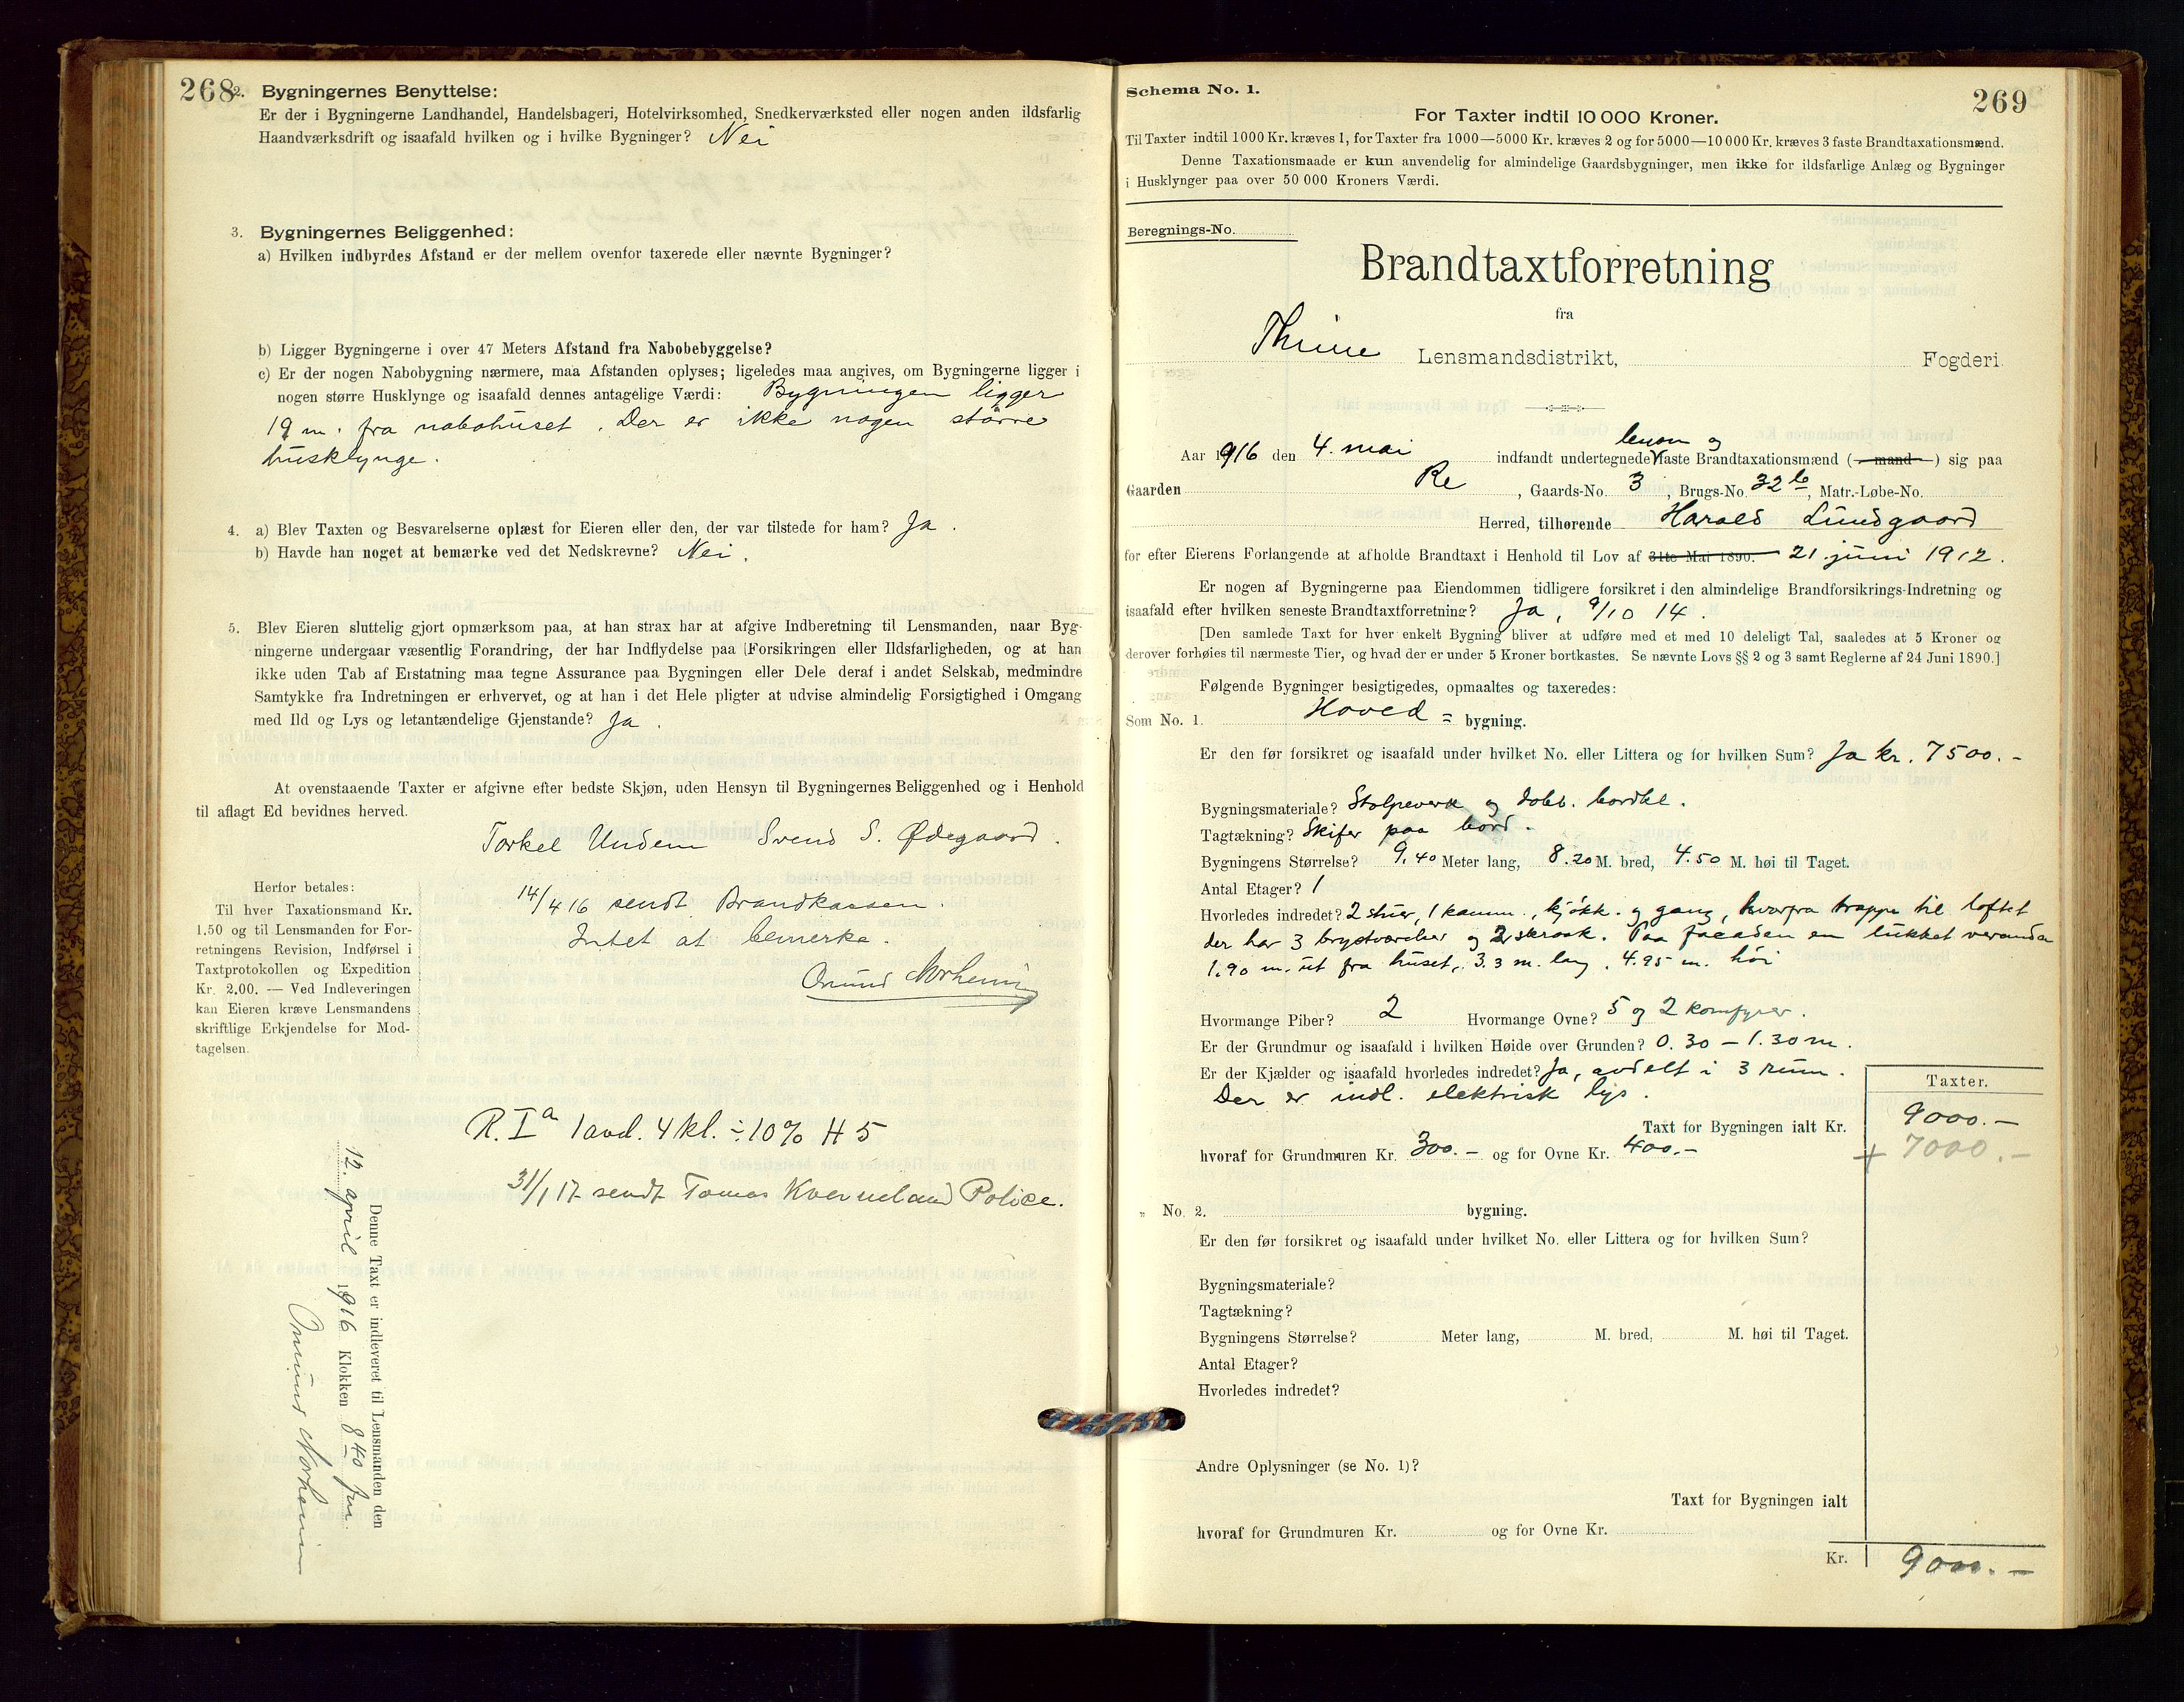 268
2. Bygningernes Benyttelse:
Er der i Bygningerne Landhandel, Handelsbageri, Hotelvirksomhed, Snedkerværksted eller nogen anden ildsfarlig
Haandværksdrift og isaafald hvilken og i hvilke Bygninger? Nei
3. Bygningernes Beliggenhed:
a) Hvilken indbyrdes Afstand er der mellem ovenfor taxerede eller nævnte Bygninger?
b) Ligger Bygningerne i over 47 Meters Afstand fra Nabobebyggelse?
c) Er der nogen Nabobygning nærmere, maa Afstanden oplyses; ligeledes maa angives, om Bygningerne ligger i
nogen større Husklynge og isaafald dennes antagelige Værdi: Bygningen ligger
19 m. fra nabohuset. Der er ikke nogen større
husklynge.
4. a) Blev Taxten og Besvarelserne oplæst for Eieren eller den, der var tilstede for ham? Ja.
b) Havde han noget at bemærke ved det Nedskrevne? Nei.
5. Blev Eieren sluttelig gjort opmærksom paa, at han strax har at afgive Indberetning til Lensmanden, naar Byg-
ningerne undergaar væsentlig Forandring, der har Indflydelse paa (Forsikringen eller Ildsfarligheden, og at han
ikke uden Tab af Erstatning maa tegne Assurance paa Bygningen eller Dele deraf i andet Selskab, medmindre
Samtykke fra Indretningen er erhvervet, og at han i det Hele pligter at udvise almindelig Forsigtighed i Omgang
med Ild og Lys og letantændelige Gjenstande? Ja.
At ovenstaaende Taxter er afgivne efter bedste Skjøn, uden Hensyn til Bygningernes Beliggenhed og i Henhold
til aflagt Ed bevidnes herved.
Torkel Undem Svend S. Ødegaard.
Herfor betales:
Til hver Taxationsmand Kr.
1.50 og til Lensmanden for For-
retningens Revision, Indførsel i
Taxtprotokollen og Expedition
Kr. 2.00. — Ved Indleveringen
kan Eieren kræve Lensmandens
skriftlige Erkjendelse for Mod-
tagelsen.
14/4 16 sendt Brandkassen.
Intet at bemerke.
Omund Norheim
R. I a 1 avd. 4 kl. ÷ 10% H 5
31/1 17 sendt Tomas Kverneland Police.
Denne Taxt er indleveret til Lensmanden den
12. april 1916 Klokken 8 40 fm.
Omund Norheim
269
Schema No. 1.
For Taxter indtil 10 000 Kroner.
Til Taxter indtil 1000 Kr. kræves 1, for Taxter fra 1000—5000 Kr. kræves 2 og for 5000—10 000 Kr. kræves 3 faste Brandtaxationsmænd.
Denne Taxationsmaade er kun anvendelig for almindelige Gaardsbygninger, men ikke for ildsfarlige Anlæg og Bygninger
i Husklynger paa over 50 000 Kroners Værdi.
Beregnings-No.
Brandtaxtforretning
fra
Thime Lensmandsdistrikt, Fogderi.
Aar 1916 den 4. mai indfandt undertegnede lensm og faste Brandtaxationsmænd (mand) sig paa
Gaarden Re, Gaards-No. 3, Brugs-No. 32 b, Matr.-Løbe-No.
Herred, tilhørende Harald Lundgaard
for efter Eierens Forlangende at afholde Brandtaxt i Henhold til Lov af 31te Mai 1890. 21 juni 1912.
Er nogen af Bygningerne paa Eiendommen tidligere forsikret i den almindelige Brandforsikrings-Indretning og
isaafald efter hvilken seneste Brandtaxtforretning? Ja, 9/10 14.
[Den samlede Taxt for hver enkelt Bygning bliver at udføre med et med 10 deleligt Tal, saaledes at 5 Kroner og
derover forhøies til nærmeste Tier, og hvad der er under 5 Kroner bortkastes. Se nævnte Lovs §§ 2 og 3 samt Reglerne af 24 Juni 1890.]
Følgende Bygninger besigtigedes, opmaaltes og taxeredes:
Som No. 1. Hoved = bygning.
Er den før forsikret og isaafald under hvilket No. eller Littera og for hvilken Sum? Ja kr. 7500.-
Bygningsmateriale? Stolpeverk og dobb. bordkl.
Tagtækning? Skifer paa bord.
Bygningens Størrelse? 9.40 Meter lang, 8.20 M. bred, 4.50 M. høi til Taget.
Antal Etager? 1
Hvorledes indredet? 2 stuer, 1 kamm., kjøkk. og gang, hvorfra trappe til loftet
der har 3 brystværelser og 2 skraak. Paa facaden en lukket veranda
1,90 m. ut fra huset, 3.3 m. lang, 4.95 m. høi
Hvormange Piber? 2 Hvormange Ovne? 5 og 2 komfyrer.
Er der Grundmur og isaafald i hvilken Høide over Grunden? 0.30 - 1.30 m.
Er der Kjælder og isaafald hvorledes indredet? Ja, avdelt i 3 rum.
Der er indl. elektrisk lys.
Taxter.
Taxt for Bygningen ialt Kr. 9000.-
hvoraf for Grundmuren Kr. 300.- og for Ovne Kr. 400.- + 7000.-
" No. 2. bygning.
Er den før forsikret og isaafald under hvilket No. eller Littera og for hvilken Sum?
Bygningsmateriale?
Tagtækning?
Bygningens Størrelse? Meter lang, M. bred, M. høi til Taget.
Antal Etager?
Hvorledes indredet?
Andre Oplysninger (se No. 1)?
Taxt for Bygningen ialt
hvoraf for Grundmuren Kr. og for Ovne Kr.
Kr. 9000.-